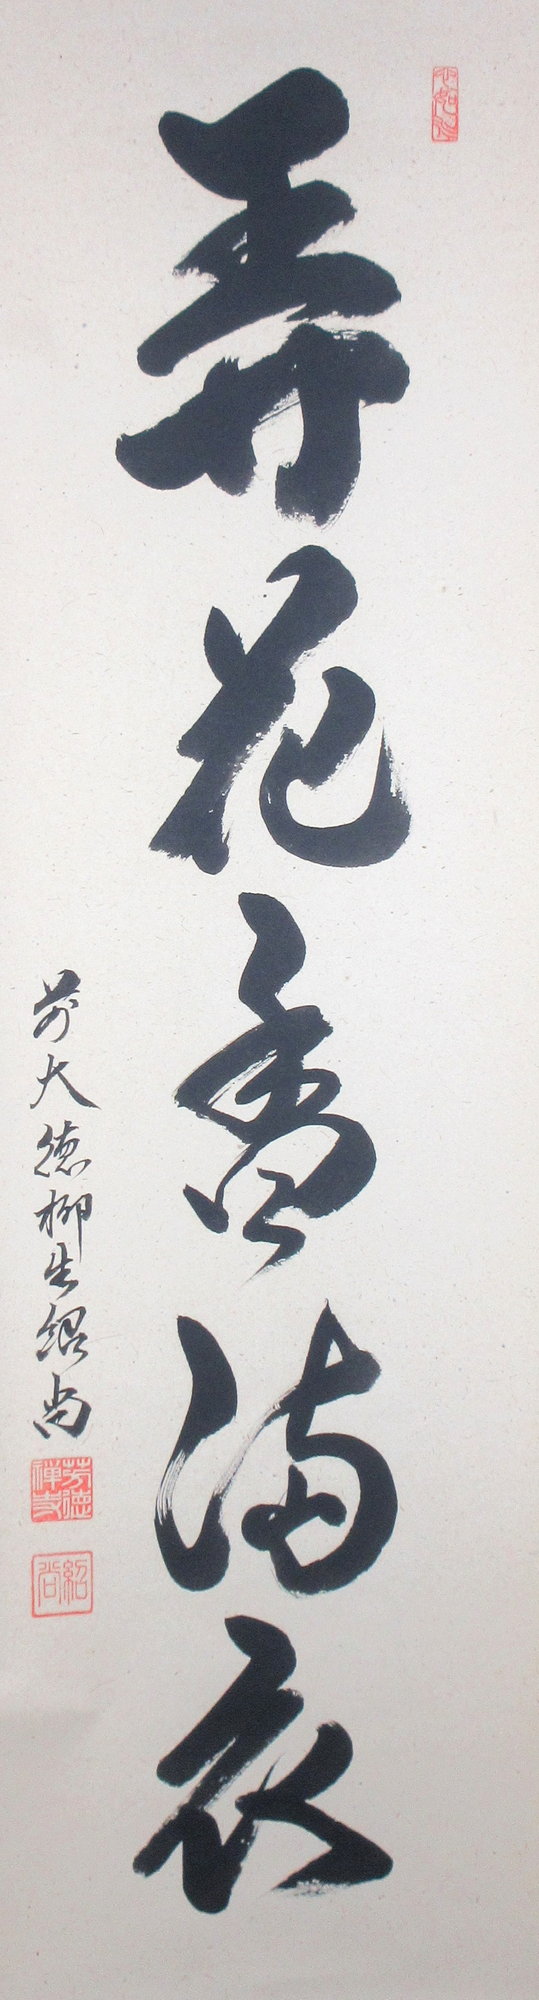 弄花香満衣
前大徳柳生紹尚
芳徳禅寺
紹尚